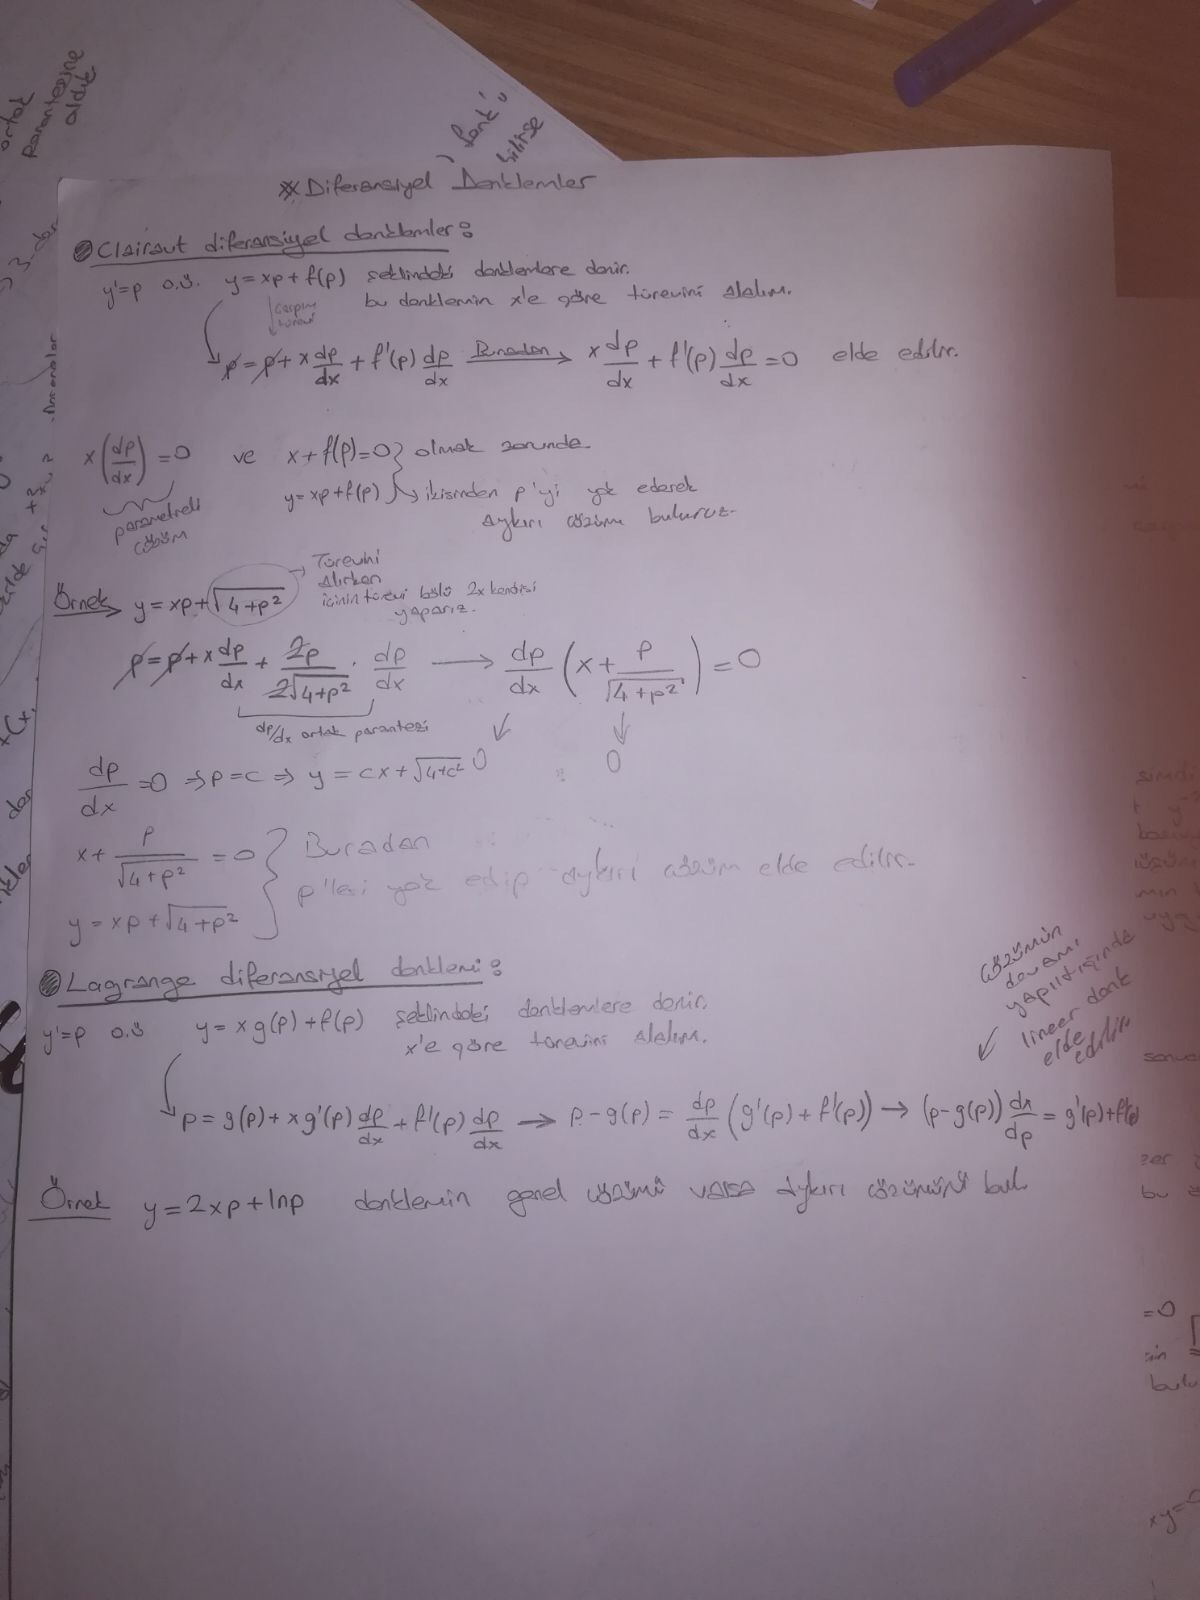 ortak
parantezine
aldık
" Lank "
bilirse
※ Diferansiyel Denklemler
Clairaut diferansiyel denklemler:
y'=p o.ü. y=xp+f(p) şeklindeki denklemlere denir.
bu denklemin x'e göre türevini alalım.
Çarpım
türevi
p=p+x dp/dx + f'(p) dp/dx Buradan → x dp/dx + f'(p) dp/dx =0 elde edilir.
x(dp/dx)=0 ve x+f'(p)=0 } olmak zorunda.
y=xp+f(p) } → ikisinden p'yi yok ederek
aykırı çözümü buluruz.
parametreli
çözüm
Örnek y=xp+√4+p² → Türevini
alırken
içinin türevi bölü 2x kendisi
yaparız.
p=p+x dp/dx + 2p/2√4+p² · dp/dx → dp/dx (x+ p/√4+p²)=0
dp/dx ortak parantezi
0 0
dp/dx =0 ⇒ p=c ⇒ y=cx+√4+c²
x+ p/√4+p² =0 } Buradan
y=xp+√4+p² } p'leri yok edip aykırı çözüm elde edilir.
Lagrange diferansiyel denklemi:
y'=p o.ü y=xg(p)+f(p) şeklindeki denklemlere denir.
x'e göre türevini alalım.
çözümün
devamı
yapıldığında
lineer denk
elde
edilir.
p=g(p)+xg'(p) dp/dx + f'(p) dp/dx → p-g(p)= dp/dx (g'(p)+f'(p)) → (p-g(p)) dx/dp = g'(p)+f'(p)
Örnek y=2xp+lnp denklemin genel çözümü varsa aykırı çözümünü bul.
=0
xy=